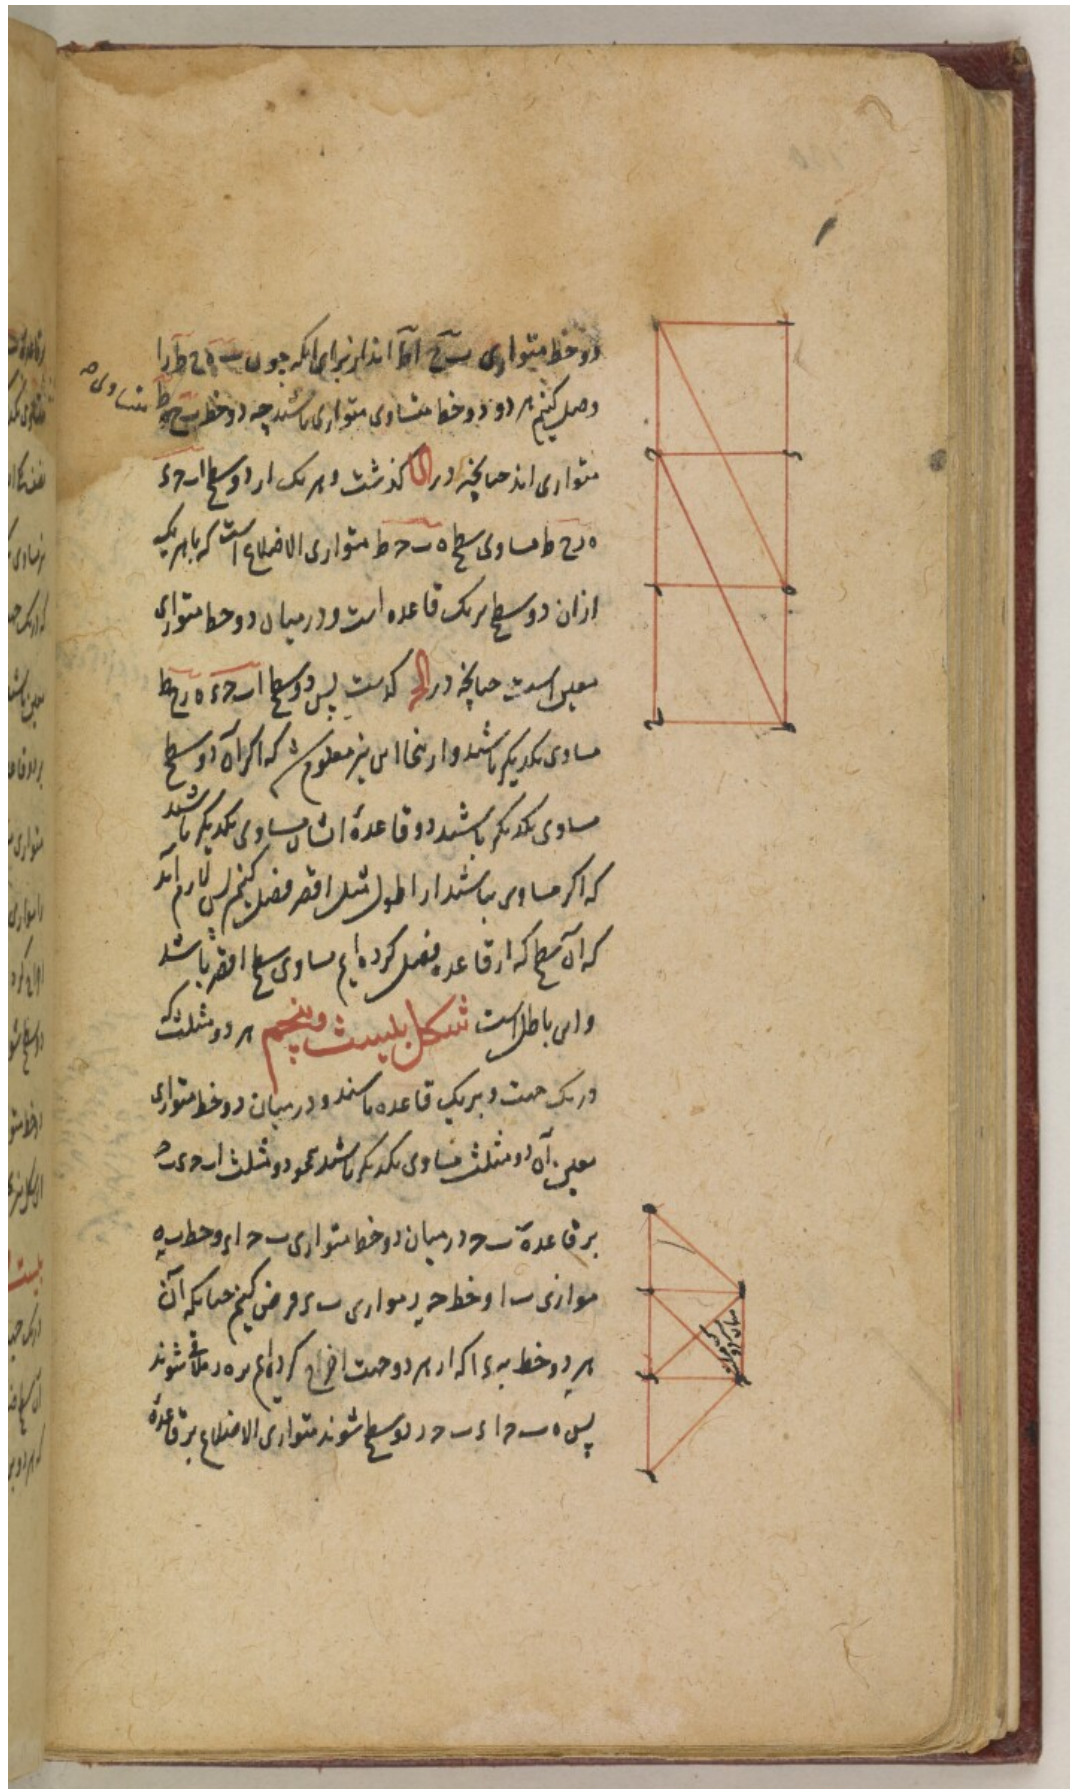 دو خط متوازی ب ح ا ط اند از برای انکه چون ب ه ح ط را
وصل کنیم هر دو دو خط متساوی متوازی باشند چه دو خط ب ح ه ط متساوی
متوازی اند چنانچه در کذشت و هر یک از دو سطح ا ب ح ء
ه ر ح ط مساوی سطح ه ب ح ط متوازی الاضلاع است که با هر یک
ازان دو سطح بر یک قاعده است و در میان دو خط متوازی
معین است چنانچه در کذشت پس دو سطح ا ب ح ء ه ر ح ط
مساوی یکدیکر باشند و از ینجا این نیز معلوم شد که اکر آن دو سطح
مساوی یکدیکر باشند دو قاعدهٔ ایشان مساوی یکدیکر باشند
که اکر مساوی نباشند از اطول مثل اقصر فصل کنیم پس لازم آید
که آن سطح که از قاعده فصل کرده ایم مساوی سطح اقصر باشد
و این باطل است شکل بیست و پنجم هر دو مثلث که
در یک جهت و بر یک قاعده باشند و در میان دو خط متوازی
معین آن دو مثلث مساوی یکدیکر باشند همچو دو مثلث ا ب ح ء ب ح
بر قاعدهٔ ب ح در میان دو خط متوازی ب ح ا ء و خط ب ه
موازی ح ا و خط ح ر موازی ب ء فرض کنیم چنانکه آن
هر دو خط به ء ا که از هر دو جهت اخراج کرده ایم بر ه ر ملاقی شوند
پس ه ب ح ا ء ب ح ر دو سطح شوند متوازی الاضلاع بر قاعدهٔ